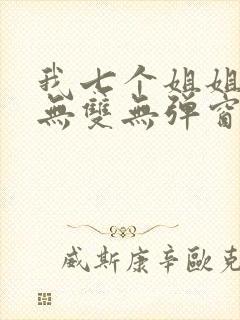 我七个姐姐
無雙無彈窗
威斯康辛歐克